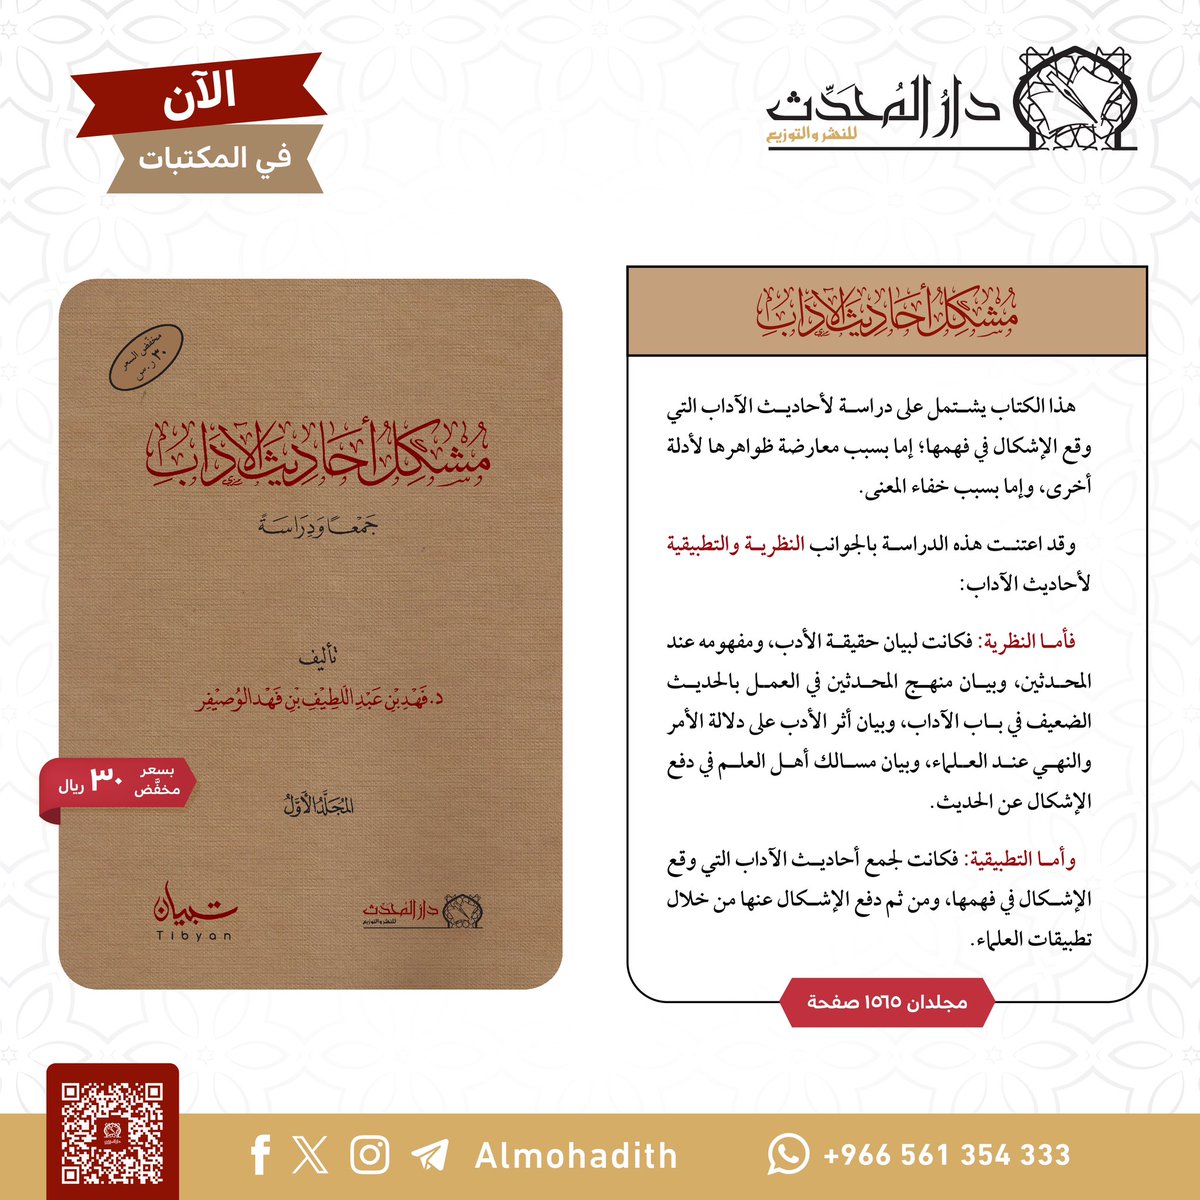 الآن
في المكتبات
دار المُحَدِّث
للنشر والتوزيع
مخفَّض السعر
٣٠ ر.س
مُشْكِلُ أَحَادِيثِ الآدَابِ
جَمْعًا وَدِرَاسَةً
تأليف
د. فَهْد بْنِ عَبْدِ اللَّطِيْفِ بْنِ فَهْد الْوُصَيْفِر
المُجَلَّدُ الأَوَّلُ
بسعر مخفَّض ٣٠ ريال
تبيان
Tibyan
دار المُحَدِّث
للنشر والتوزيع
مُشْكِلُ أَحَادِيثِ الآدَابِ
هذا الكتاب يشتمل على دراسة لأحاديث الآداب التي
وقع الإشكال في فهمها؛ إما بسبب معارضة ظواهرها لأدلة
أخرى، وإما بسبب خفاء المعنى.
وقد اعتنت هذه الدراسة بالجوانب النظرية والتطبيقية
لأحاديث الآداب:
فأما النظرية: فكانت لبيان حقيقة الأدب، ومفهومه عند
المحدثين، وبيان منهج المحدثين في العمل بالحديث
الضعيف في باب الآداب، وبيان أثر الأدب على دلالة الأمر
والنهي عند العلماء، وبيان مسالك أهل العلم في دفع
الإشكال عن الحديث.
وأما التطبيقية: فكانت لجمع أحاديث الآداب التي وقع
الإشكال في فهمها، ومن ثم دفع الإشكال عنها من خلال
تطبيقات العلماء.
مجلدان ١٥٦٥ صفحة
Almohadith
+966 561 354 333